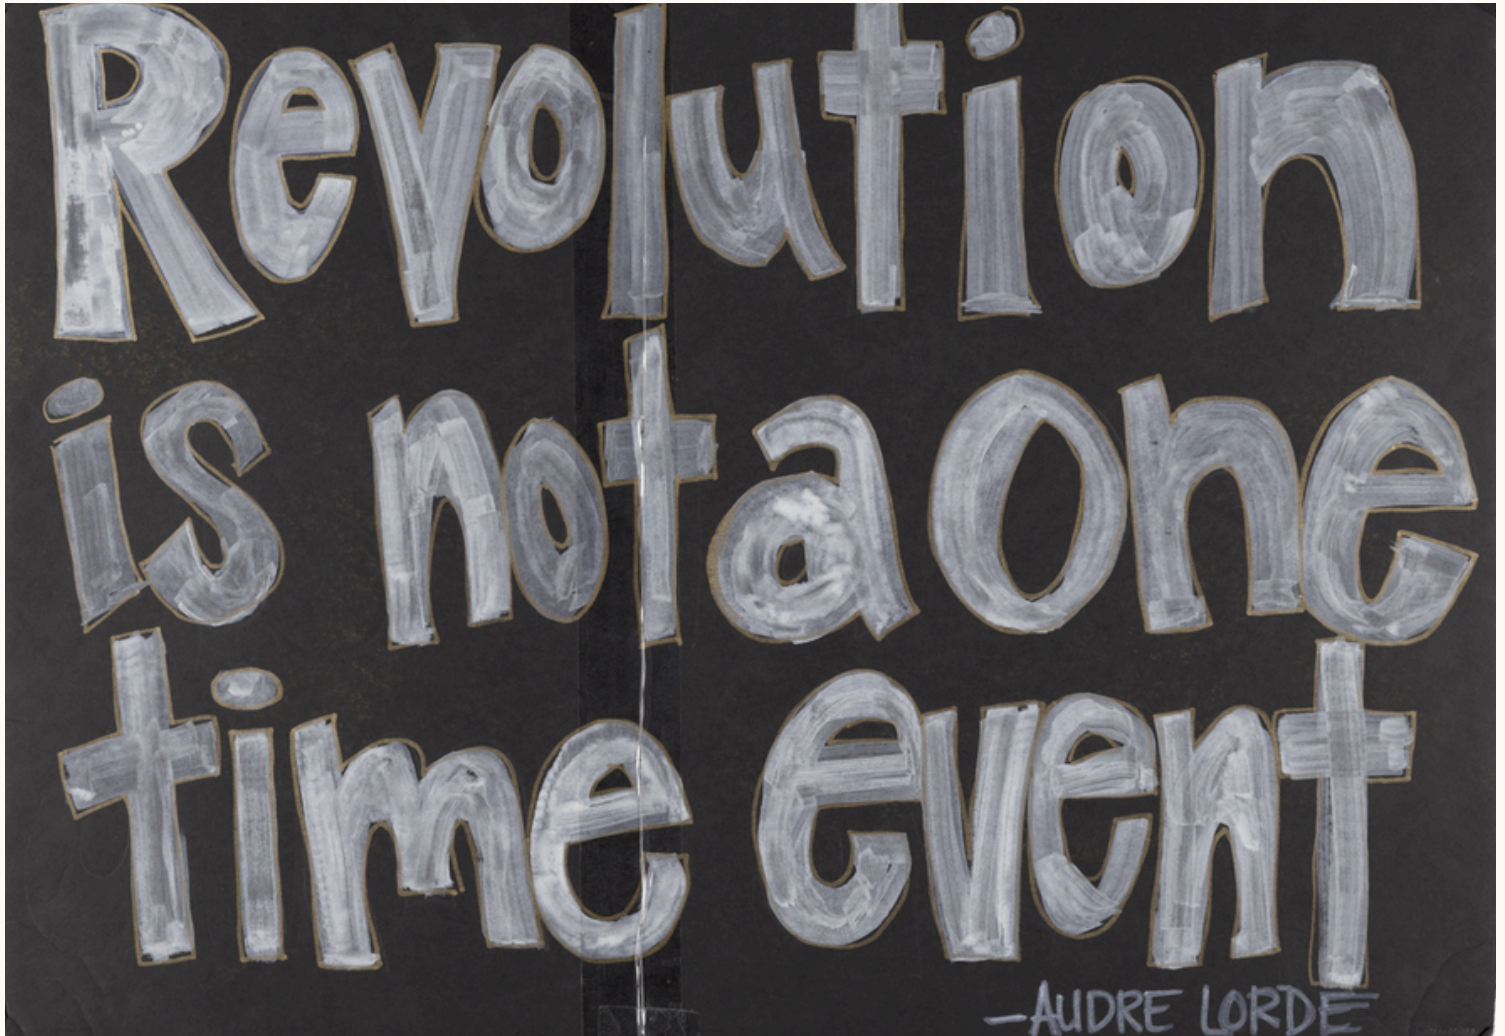 Revolution
is not a one
time event
—AUDRE LORDE